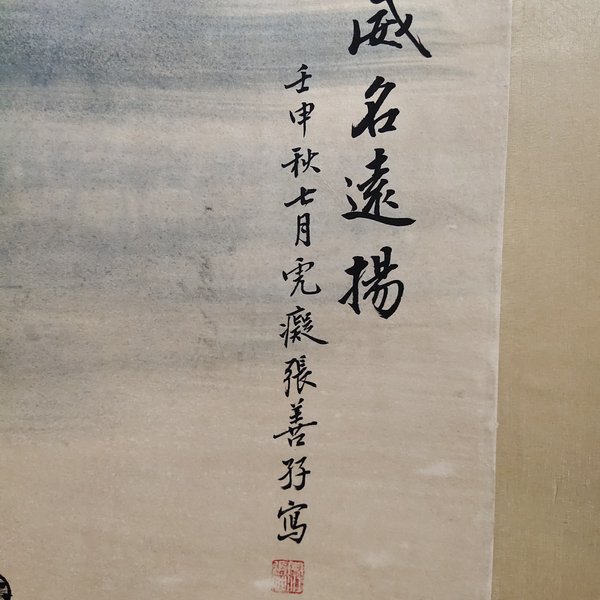 威名遠揚
壬申秋七月虎癡張善孖寫